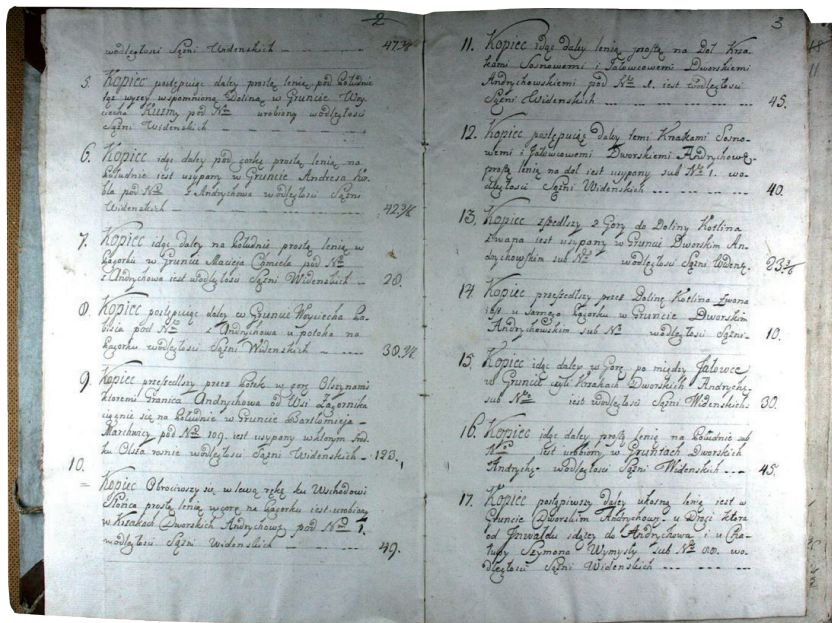 2
wodległosci Sążni Widenskich — — — 47 3/6
5. Kopiec postępuiąc daley prostą lenią pod Południe
tąż wyzey wspomnioną Dolinę w Gruncie Woy-
ciecha Kuzmy pod Nro urobiony wodległosci
Sążni Widenskich — — —
6. Kopiec idąc daley pod gorkę prostą lenią na
Południe iest usypany w Gruncie Andresa
pod Nro z Andrychowa wodległosci Sążni
Widenskich — — — 42 3/6
7. Kopiec idąc daley na Południe prostą lenią w
Pagorku w Gruncie Macieja pod Nro
z Andrychowa iest wodległosci Sążni Widenskich — 28.
8. Kopiec postępuiąc daley w Gruncie Woyciecha
pod Nro z Andrychowa u potoka na
Pagorku wodległosci Sążni Widenskich — — 30
9. Kopiec przeszedlszy przez Potok w gorę Olszynami
ktoremi Granica Andrychowa od Wsi Zagornika
ciągnie się na Południe w Gruncie Bartłomieja
Marchwicy pod Nro 109. iest usypany wktorym
Olsza rosnie wodległosci Sążni Widenskich — 123.
10. Kopiec Obrociwszy się w lewą rękę ku Wschodowi
Słońca prostą lenią wgorę na Pagorku iest urobiony
w Krzakach Dworskich Andrychow. pod Nro 1.
wodległosci Sążni Widenskich — — — 49.
3
11. Kopiec idąc daley lenią prostą na Doł Krza-
kami Sosnowemi i Jałowcowemi Dworskiemi
Andrychowskiemi pod Nro 1. iest wodległosci
Sążni Widenskich — — — 45.
12. Kopiec postępuiąc daley temi Krzakami Sosno-
wemi i Jałowcowemi Dworskiemi Andrychow.
prostą lenią na doł iest usypany sub Nro 1. wo-
dległosci Sążni Widenskich — — — 40.
13. Kopiec zszedlszy z Gory do Doliny Kotlina
zwana iest usypany w Gruncie Dworskim An-
drychowskim sub Nro wodległosci Sążni Widen. 23
14. Kopiec przeszedlszy przez Dolinę Kotlina zwana
iest u samego Pagorku w Gruncie Dworskim
Andrychowskim sub Nro wodległosci Sążni 10.
15. Kopiec idąc daley w Gorę po między Jałowce
w Gruncie czyli Krzakach Dworskich Andrych.
sub Nro iest wodległosci Sążni Widenskich 30.
16. Kopiec idąc daley prostą lenią na Południe sub
Nro iest urobiony w Gruntach Dworskich
Andrych. wodległosci Sążni Widenskich — — — 45.
17. Kopiec postąpiwszy daley ukosną lenią iest w
Gruncie Dworskim Andrychow. u Drogi ktora
od Inwałdu idzie do Andrychowa i u Cha-
łupy Szymona Wymysły sub Nro 80. wo-
dległosci Sążni Widenskich — — —